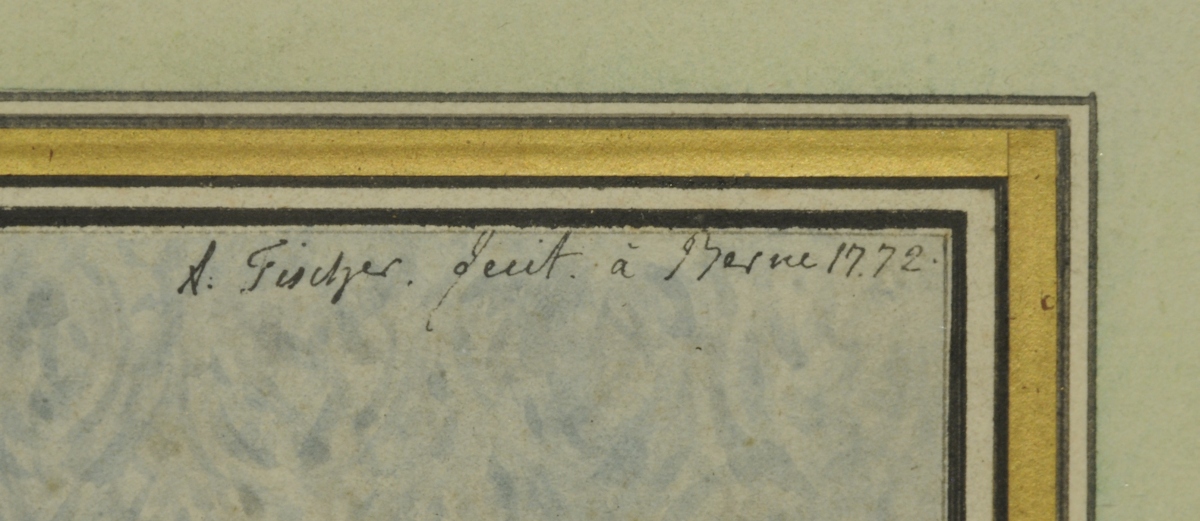 A: Fischer. fecit. à Berne 1772.